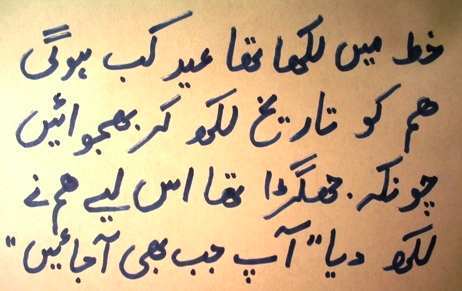 خط میں لکھا تھا عید کب ہوگی
ھم کو تاریخ لکھ کر بھجوائیں
چونکہ جھگڑا تھا اس لیے ھم نے
لکھ دیا "آپ جب بھی آجائیں"